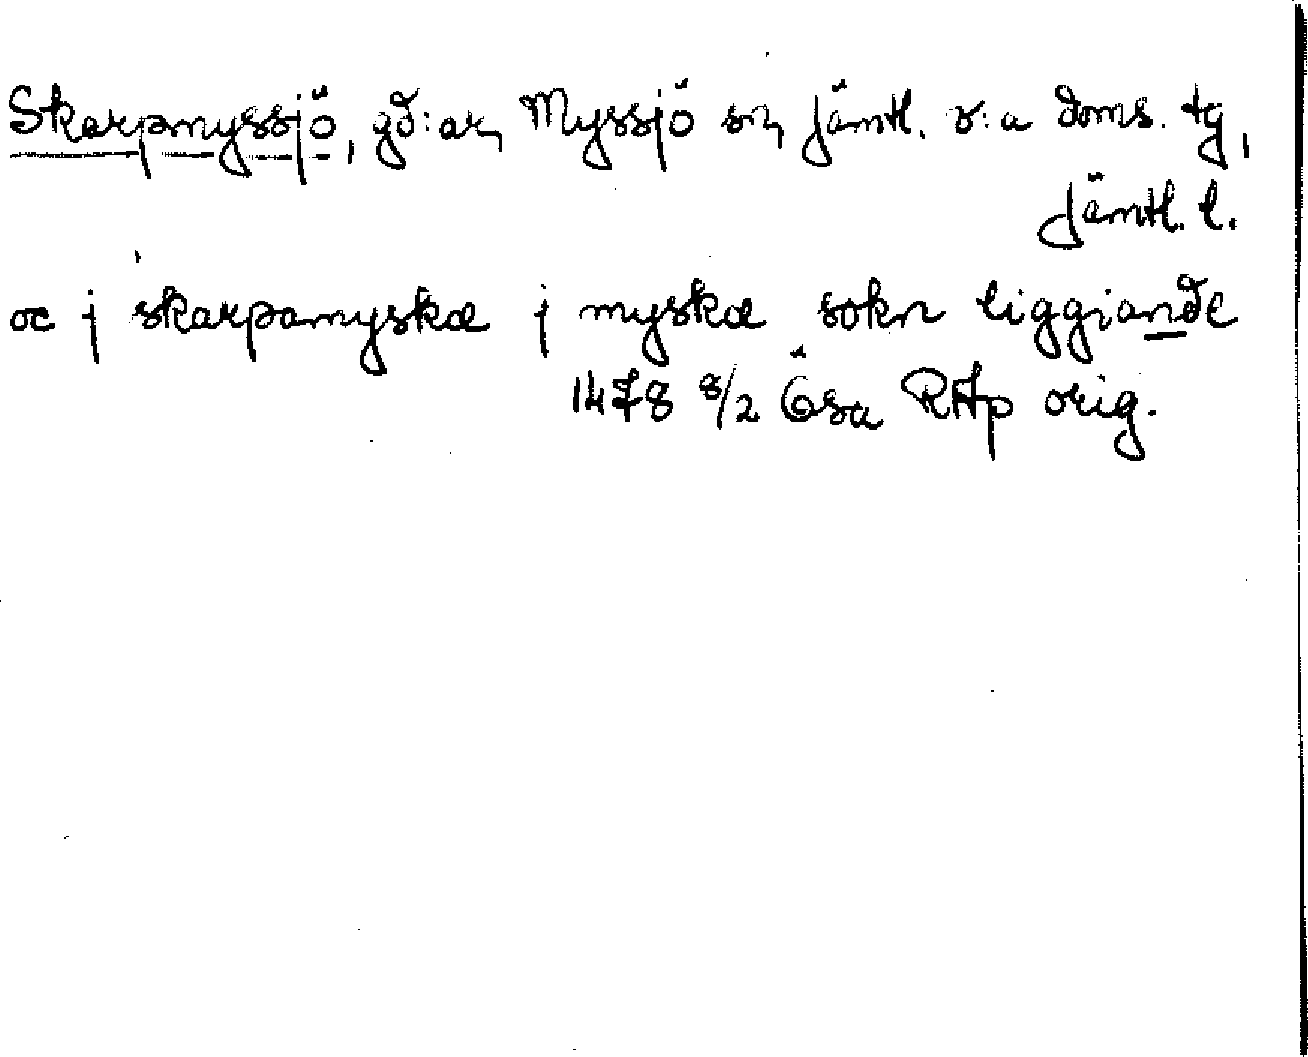 Skarpmyssjö, gd:ar, Myssjö sn, Jämtl. v:a doms. tg,
Jämtl. l.
oc j skarpamyskæ j myskæ sokn liggiande
1478 8/2 Ösa RAp orig.